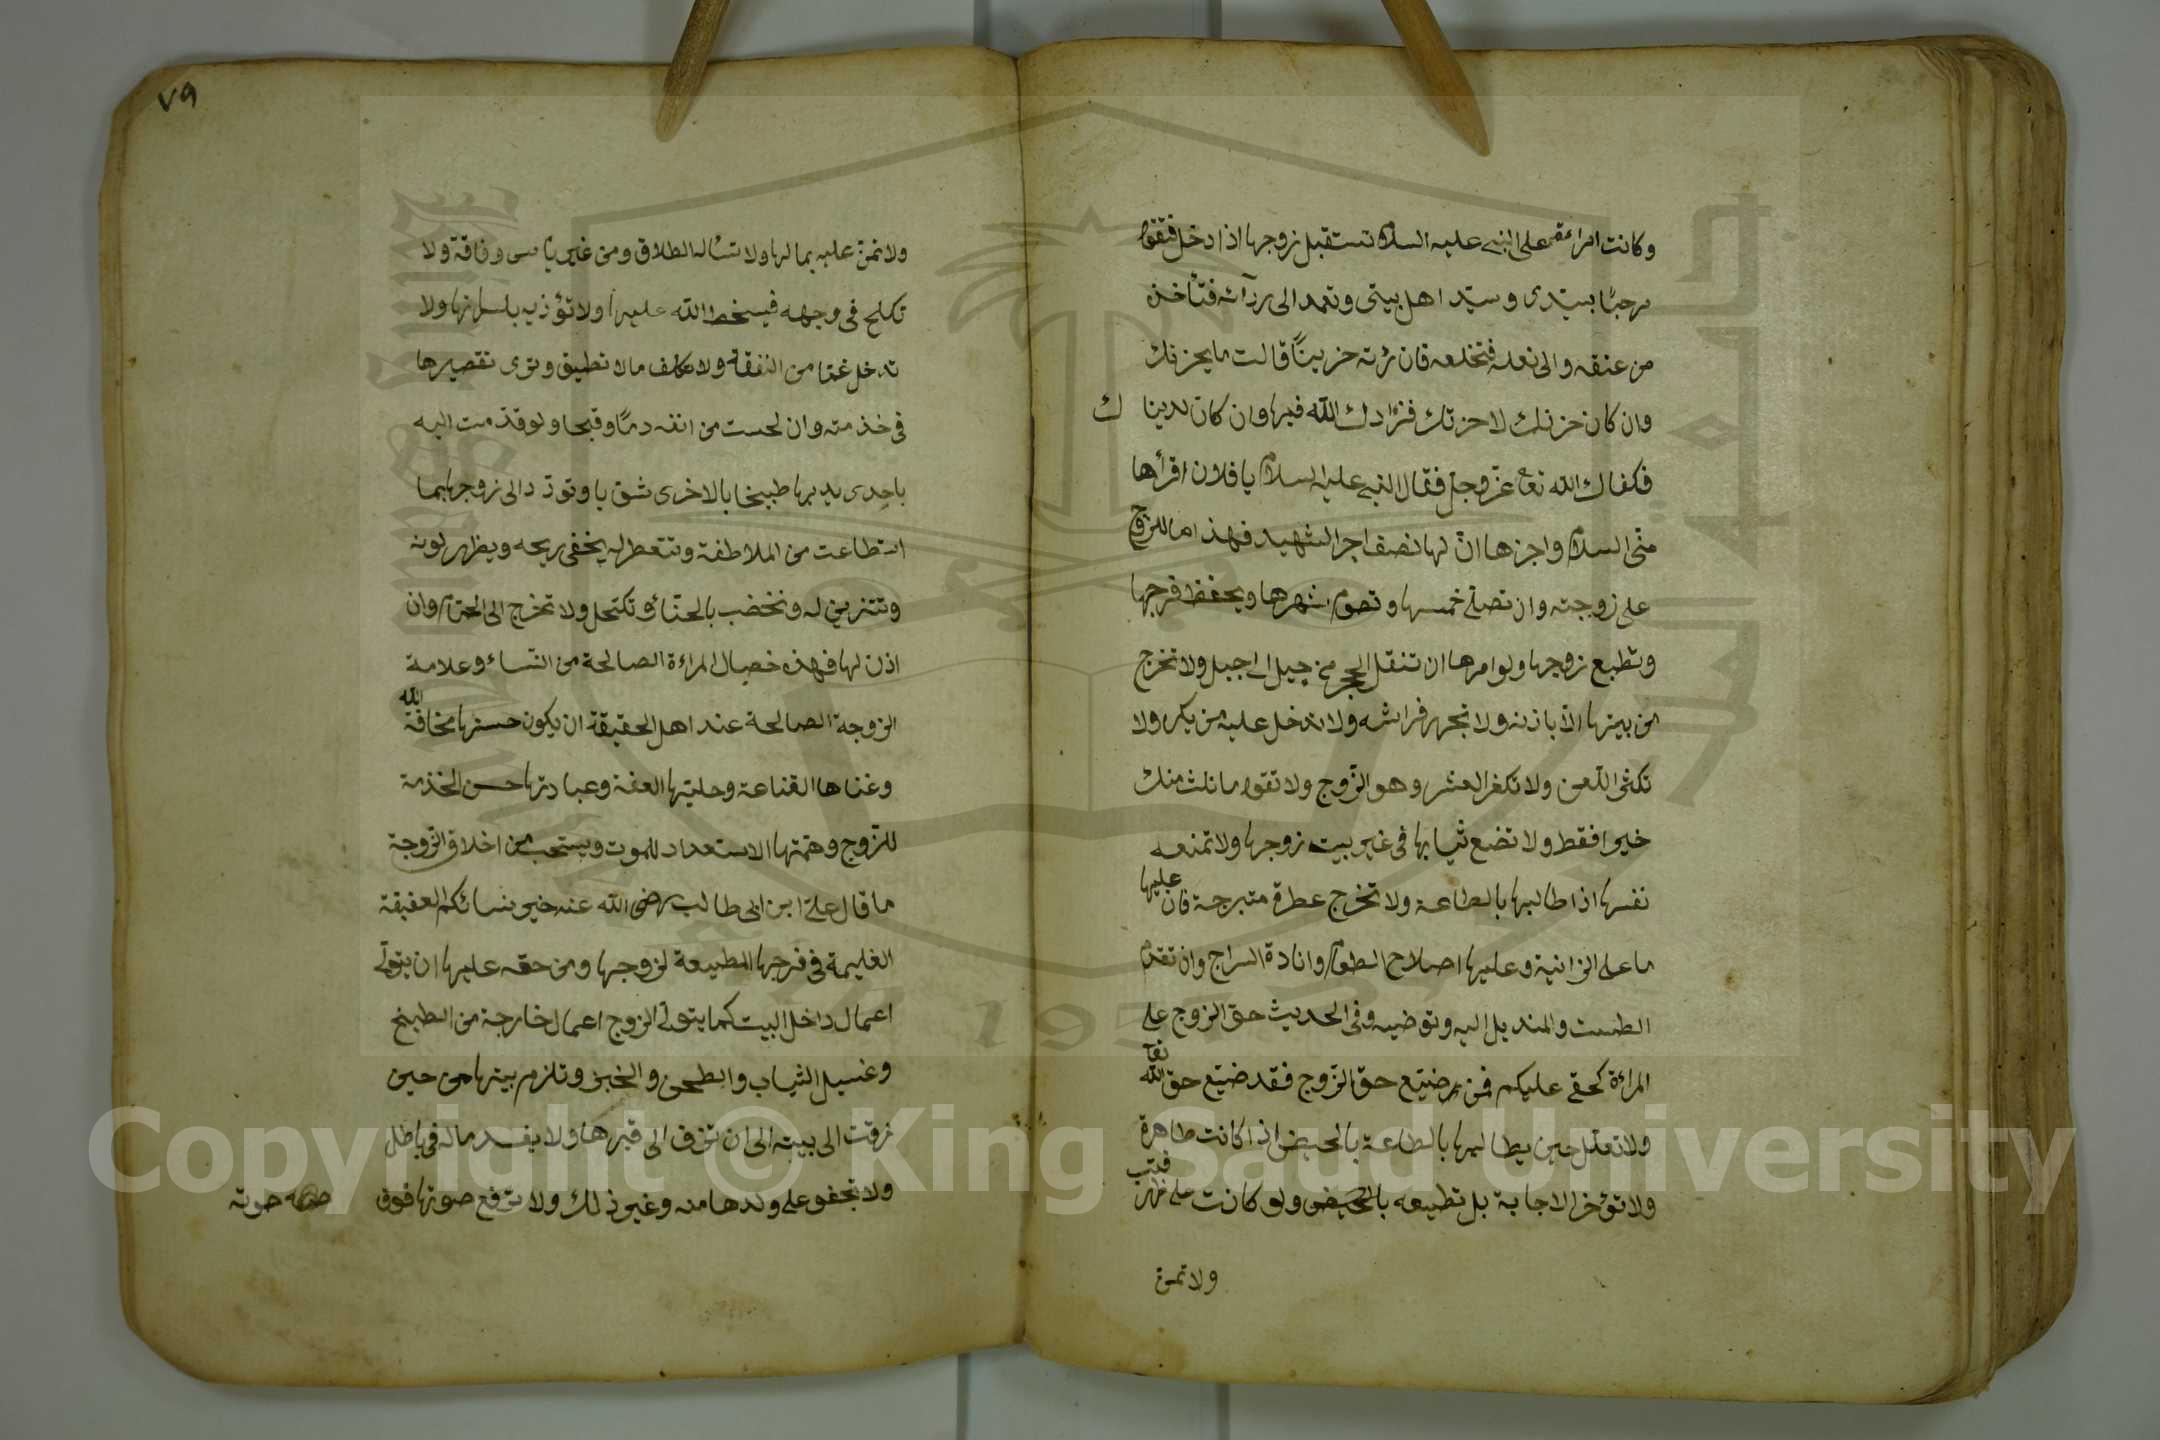 وكانت امراة على النبي عليه السلام تستقبل زوجها اذا دخل فتقول
مرحبًا بسيّدى وسيّد اهل بيتى وتعمد الى ردآئه فتأخذ
من عنقه والى نعله فتخلعه فان رئته حزينًا قالت ما يحزنك
وان كان حزنك لاخرتك فزادك الله فيها وان كان لدينا ك
فكفاك الله تعا عزّ وجلّ فقال النبي عليه السلام يا فلان اقرأها
منّى السلام واجزها انّ لها نصف اجر الشهيد فهذا ما للزوج
على زوجته وان تصلّى خمسها وتصوم شهرها ويحفظ فرجها
وتطيع زوجها ولو امرها ان تنقل الحجر من جبل الى جبل ولا تخرج
من بيتها الّا باذنه ولا تهجر فراشه ولا تدخل عليه من يكره ولا
تكثر اللّعن ولا تكفر العشير وهو الزّوج ولا تقول ما نلت منك
خيرا فقط ولا تضع ثيابها فى غير بيت زوجها ولا تمنعه
نفسها اذا طالبها بالطاعة ولا تخرج عطرة متبرجة فان عليها
ما على الزانية وعليها اصلاح الطعام وانارة السراج وان تقدم
الطست والمنديل اليه وتوضيه وفى الحديث حق الزوج على
المراءة كحقى عليكم فمن ضيّع حق الزّوج فقد ضيّع حق الله تعآ
ولا تعتل حين يطالبها بالطاعة بالحيض اذا كانت طاهرة
ولا تؤخر الاجابة بل تطيعه بالحيض ولو كانت على ظهر قتب
ولا تمن
٧٩
ولا تمنّ عليه بمالها ولا تسأله الطلاق ومن غير بأس وفاقة ولا
تكلح فى وجهه فيسخط الله عليها ولا تؤذيه بلسانها ولا
تدخل غمّا من النفقة ولا تكلف ما لا تطيق وترى تقصيرها
فى خذمته وان لحست من انفه دمًا وقيحا ولو قدّمت اليه
باحدى يديها طبيخا بالاخرى شويا وتودّد الى زوجها بما
استطاعت من الملاطفة وتتعطر له يخفى ريحه ويظهر لونه
وتتزين له وتخضب بالحنّاء وتكتحل ولا تخرج الى الحمّام وان
اذن لها فهذه خصال المراءة الصالحة من النّساء وعلامة
الزوجة الصالحة عند اهل الحقيقة ان يكون حسنها مخافة الله
وغناها القناعة وحليتها العفة وعبادتها حسن الخذمة
للزّوج وهمّتها الاستعداد للموت ويستحب من اخلاق الزّوجة
ما قال علىّ ابن ابى طالب رضى الله عنه خير نسائكم العفيفة
الغليمة فى فرجها المطيعة لزوجها ومن حقه عليها ان يتولّى
اعمال داخل البيت كما يتولّى الزوج اعمال خارجة من الطبخ
وغسيل الثياب والطحن والخبز وتلزم بيتها من حين
زفّت الى بيته الى ان تزف الى قبرها ولا يفسد ماله فى باطل
ولا تجفو على ولدها منه وغير ذلك ولا ترفع صوتها فوق صوته
Copyright © King Saud University
1957